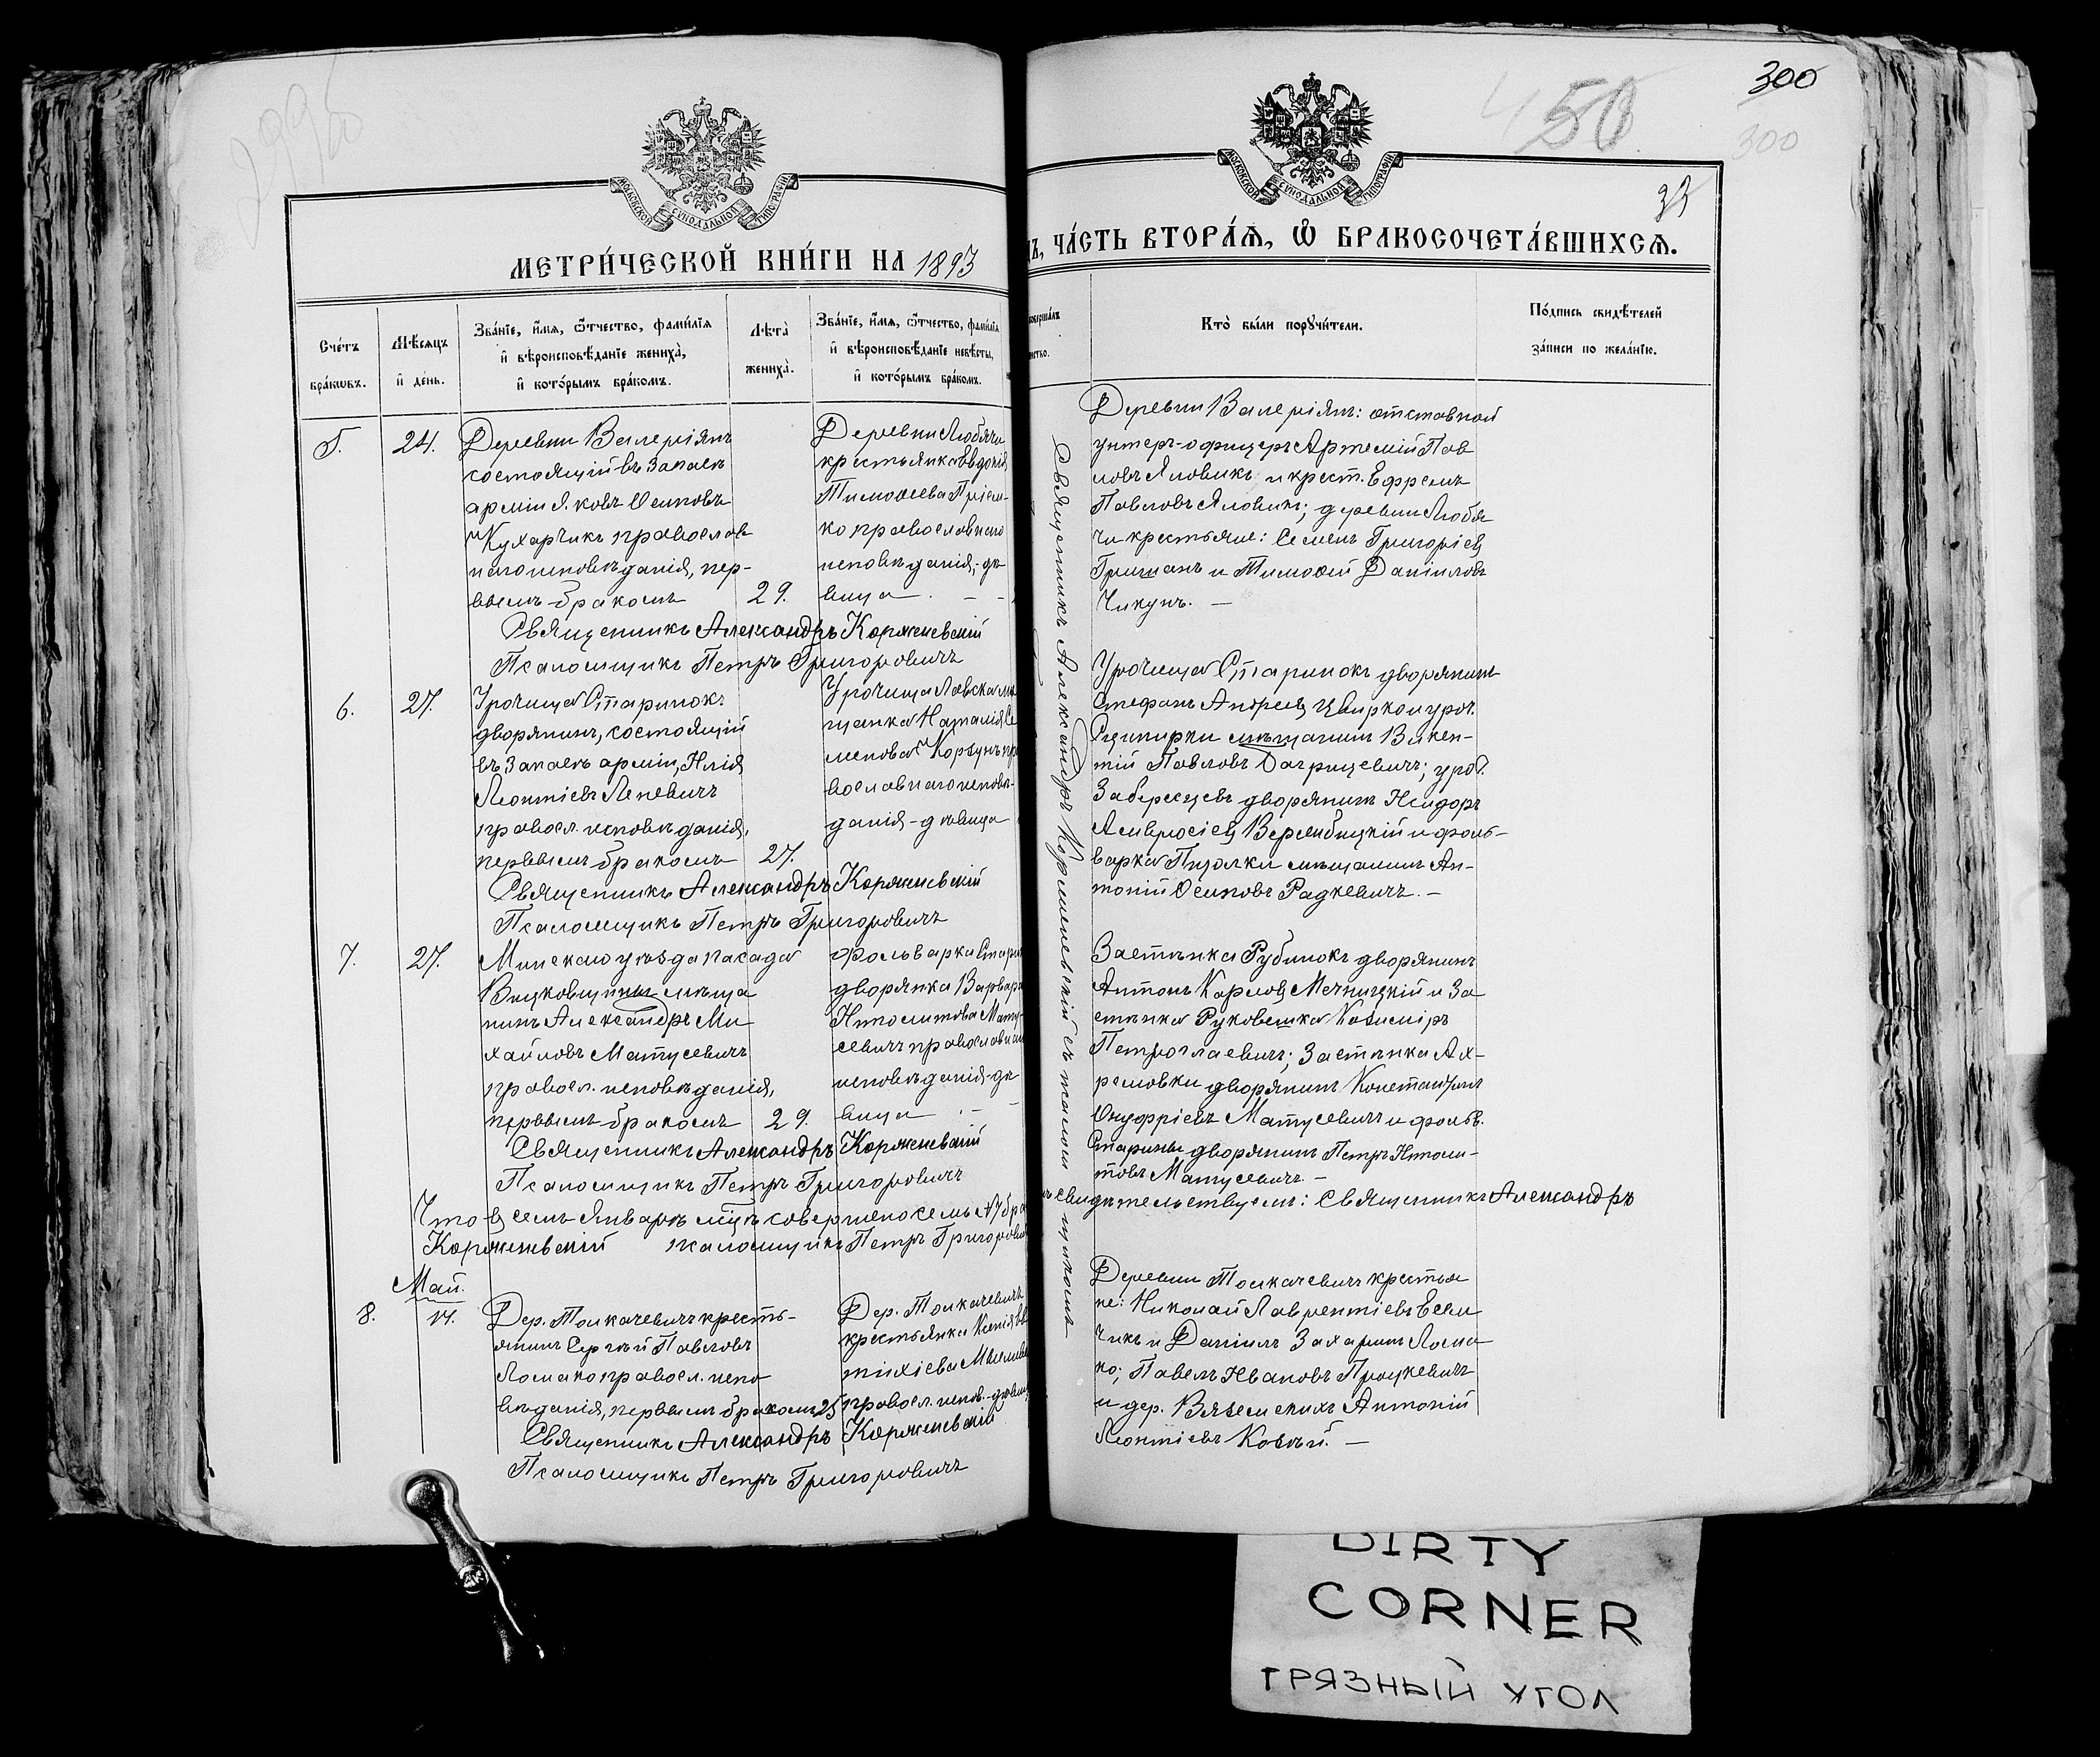 299об
МЕТРИ́ЧЕСКОЙ КНИ́ГИ НА 1893
Сче́тъ бра́кѡвъ.
Мѣ́сяцъ и҆ де́нь.
Зва́нїе, и҆́мя, ѻ҆́тчество, фами́лїя и҆ вѣроисповѣ́данїе жениха̀, и҆ кото́рымъ бра́комъ.
Лѣта̀ жениха̀.
Зва́нїе, и҆́мя, ѻ҆́тчество, фами́лїя и҆ вѣроисповѣ́данїе невѣ́сты, и҆ кото́рымъ бра́комъ.
5.
24.
Деревни Валеріянъ
состоящій въ запасѣ
арміи Яковъ Осиповъ
Кухарчикъ православ
наго исповѣданія, пер-
вымъ бракомъ
29.
Деревни Любячи
крестьянка Евдокія
Тимоѳеева Пріем-
ко православнаго
исповѣданія, дѣ
вица. - -
Священникъ Александръ Корженевскій
Псаломщикъ Петръ Григоровичъ
6.
27.
Урочища Старинокъ
дворянинъ, состоящій
въ запасѣ арміи, Илія
Леонтіевъ Лепевичъ
правосл. исповѣданія,
первымъ бракомъ
27.
Урочища Лавска мѣ
щанка Наталія Се
менова Корзунъ пра
вославнаго исповѣ-
данія - дѣвица
Священникъ Александръ Корженевскій
Псаломщикъ Петръ Григоровичъ
7.
27.
Минскаго уѣзда посада
Вицковщины мѣща
нинъ Александръ Ми
хайловъ Матусевичъ
правосл. исповѣданія,
первымъ бракомъ
29.
Фольварка Стари
дворянка Варвара
Ипполитова Мату-
севичъ православнаго
исповѣданія - дѣ
вица. - -
Священникъ Александръ Корженевскій
Псаломщикъ Петръ Григоровичъ
Что въ семъ Январѣ мцѣ совершено семь N7 бра
Корженевскій псаломщикъ Петръ Григорович
Май.
8.
14.
Дер. Толкачевичъ кресть-
янинъ Сергѣй Павловъ
Ломако правосл. испо
вѣданія, первымъ бракомъ
25
Дер. Толкачевичъ
крестьянка Ксенія Ев
тихіева
правосл. испов. - дѣвица
Священникъ Александръ Корженевскій
Псаломщикъ Петръ Григоровичъ
300
450
300
33
Ъ, ЧА́СТЬ ВТОРА́Я, Ѽ БРАКОСОЧЕТА́ВШИХСЯ.
совершалъ
нство.
Кто̀ бы́ли порꙋчи́тели.
По́дпись свидѣ́телей за́писи по жела́нїю.
Священникъ Александръ Корженевскій съ псаломщикомъ
Деревни Валеріянъ: отставной
унтеръ-офицеръ Артемій Пав
ловъ Яловикъ и крест. Ефремъ
Павловъ Яловикъ; деревни Любя
чи крестьяне: Семенъ Григоріевъ
Гришанъ и Тимоѳей Даніиловъ
Чикунъ. —
Урочища Старинокъ дворянинъ
Стефанъ Андреевъ Цвирко и уроч.
Сципирки мѣщанинъ Викен-
тій Павловъ Багрицевичъ; уроч.
Заберезцевъ дворянинъ Исидоръ
Амвросіевъ Вержбицкій и фоль-
варка Пчолки мѣщанинъ Ан-
тоній Осиповъ Радкевичъ. —
Застѣнка Рубинокъ дворянинъ
Антонъ Карловъ Мечницкій и за
стѣнка Руковешка Казиміръ
Петроглаевичъ; застѣнка Ах-
ремовки дворянинъ Константинъ
Онуфріевъ Матусевичъ и фольв.
Старины дворянинъ Петръ Ипполи-
товъ Матусевичъ. —
свидѣтельствуемъ: Священникъ Александръ
Деревни Толкачевичъ крестья
не: Николай Лаврентіевъ Есьм
чикъ и Даніилъ Захаринъ Лома
ко; Павелъ Ивановъ Процкевичъ
и дер. Вяземскихъ Антоній
Леонтіевъ Козѣй. —
DIRTY
CORNER
ГРЯЗНЫЙ УГОЛ